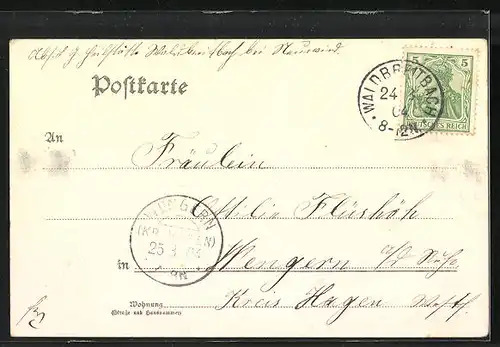 bei Neuwied.
Postkarte
WALDBREITBACH
24
04
8-12N
5 5
DEUTSCHES REICH
An
Fräulein
Ottilie Flüshöh
WENGERN
25
in Wengern a/d Ruhr
Kreis Hagen Westf.
Wohnung
(Straße und Hausnummer)